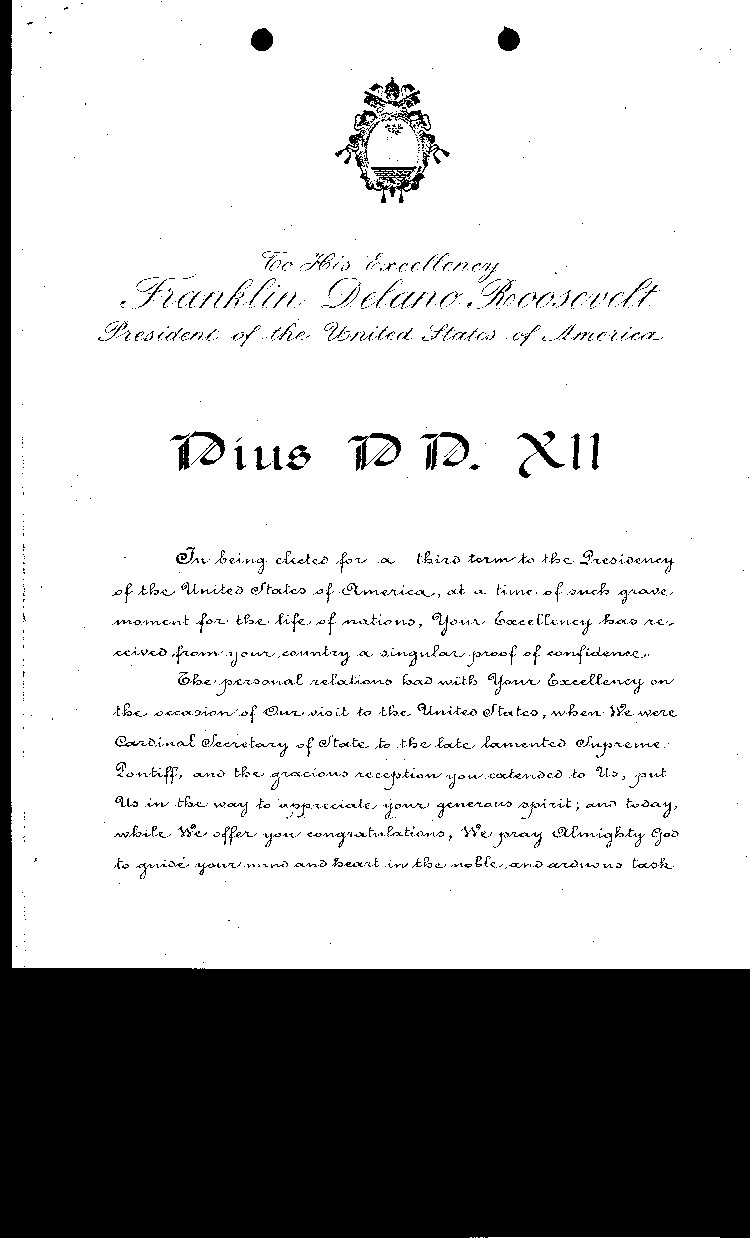 To His Excellency
Franklin Delano Roosevelt
President of the United States of America
Pius PP. XII
In being elected for a third term to the Presidency
of the United States of America, at a time of such grave
moment for the life of nations, Your Excellency has re-
ceived from your country a singular proof of confidence.
The personal relations had with Your Excellency on
the occasion of Our visit to the United States, when We were
Cardinal Secretary of State to the late lamented Supreme
Pontiff, and the gracious reception you extended to Us, put
Us in the way to appreciate your generous spirit; and today,
while We offer you congratulations, We pray Almighty God
to guide your mind and heart in the noble and arduous task